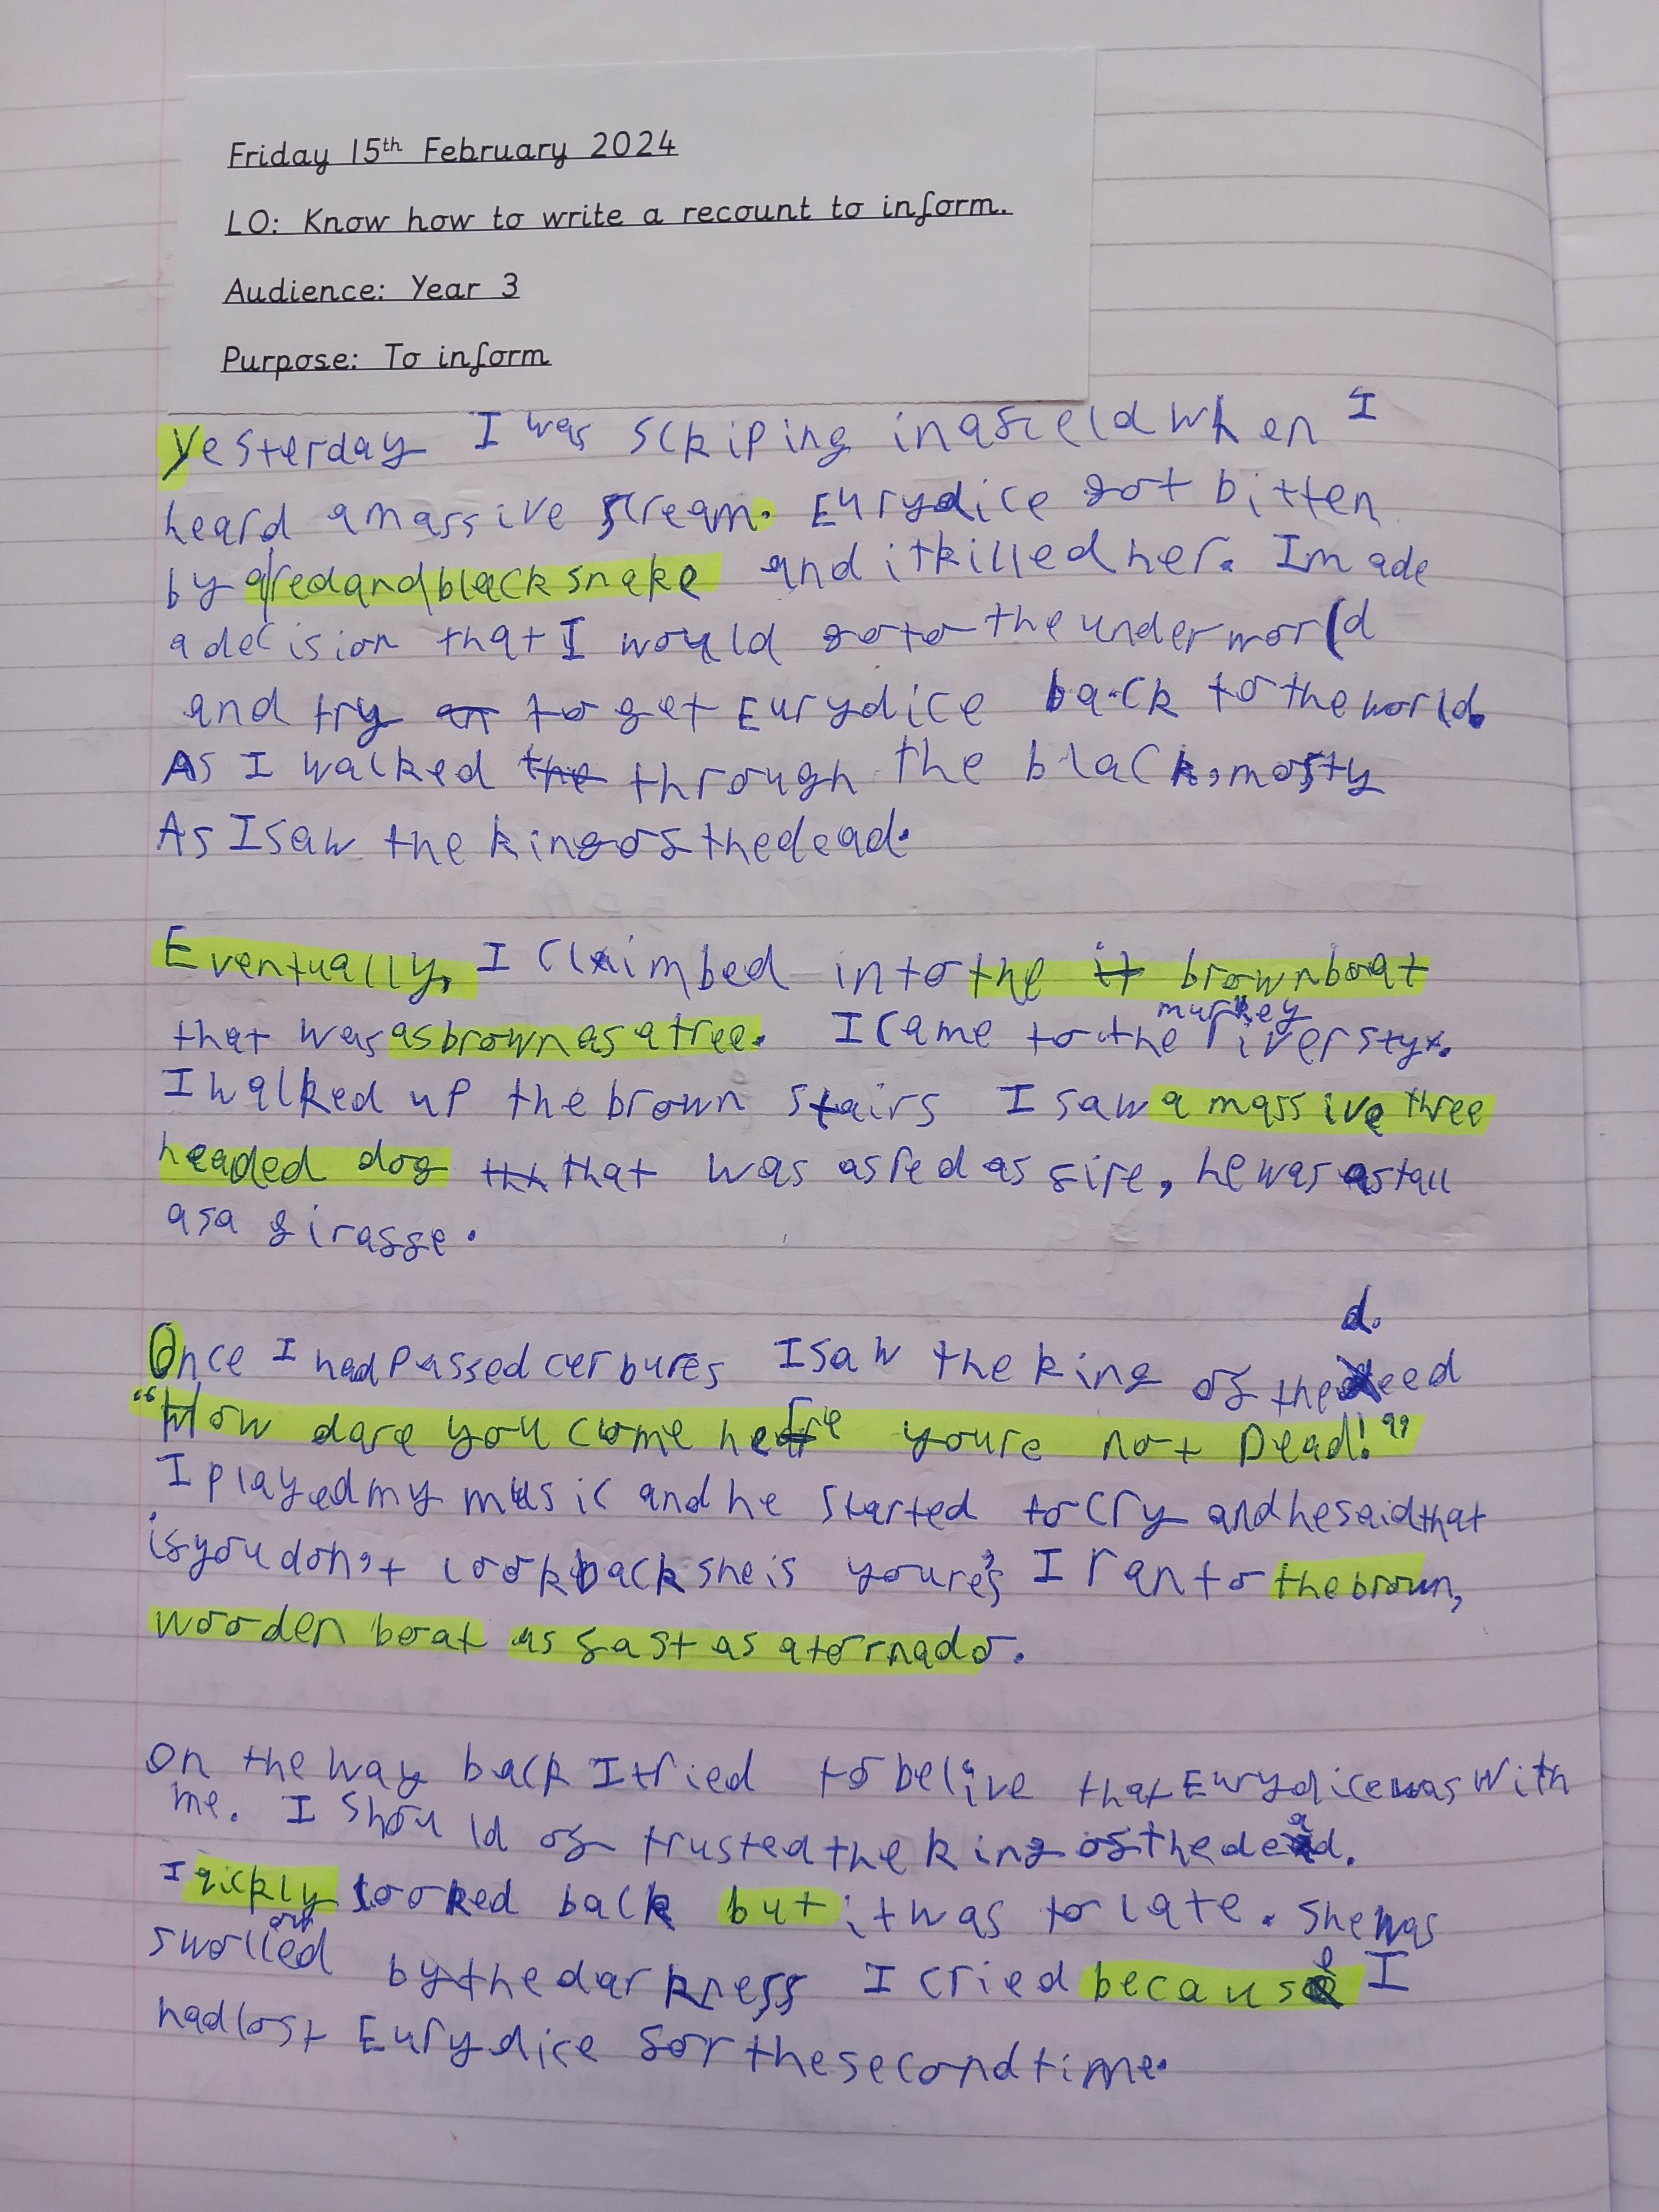 Friday 15th February 2024
LO: Know how to write a recount to inform.
Audience: Year 3
Purpose: To inform
Yesterday I was sckiping in a field when I
heard a massive scream. Eurydice got bitten
by a red and black snake and it killed her. I made
a decision that I would go to the underworld
and try to get Eurydice back to the world.
As I walked through the black, mosty
As I saw the king of the dead.
Eventually, I claimbed into the brown boat
that was as brown as a tree. I came to the murkey river styx.
I walked up the brown stairs I saw a massive three
headed dog that was as red as fire, he was as tall
as a giraffe.
Once I had passed cerbures I saw the king of the deed d.
"How dare you come here youre not Dead!"
I played my music and he started to cry and he said that
if you don't look back she is youre's I ran to the broun,
wooden boat as fast as a tornado.
on the way back I tried to belive that Eurydice was with
me. I should of trusted the king of the dead.
I qickly looked back but it was to late. She was
swolled by the darkness I cried because I
had lost Eurydice for the second time.